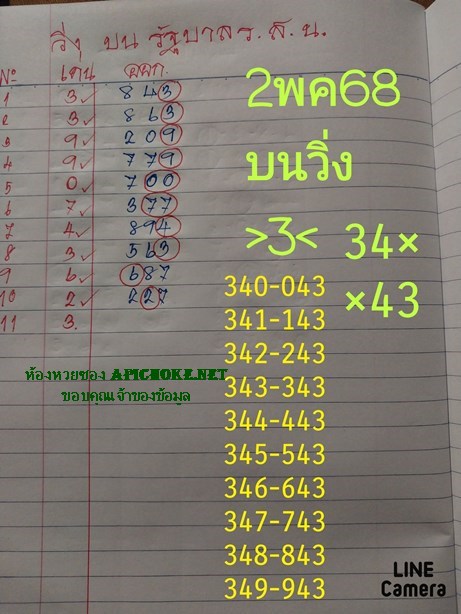 วิ่ง บน รัฐบาล ร.ส.น.
№ เด่น ออก.
1 3✓ 843
2 3✓ 863
3 9✓ 209
4 9✓ 779
5 0✓ 700
6 7✓ 377
7 4✓ 894
8 3✓ 563
9 6✓ 687
10 2✓ 227
11 3.
2พค68
บนวิ่ง
>3< 34×
×43
340-043
341-143
342-243
343-343
344-443
345-543
346-643
347-743
348-843
349-943
ห้องหวยซอง APICHOKE.NET
ขอบคุณเจ้าของข้อมูล
LINE
Camera